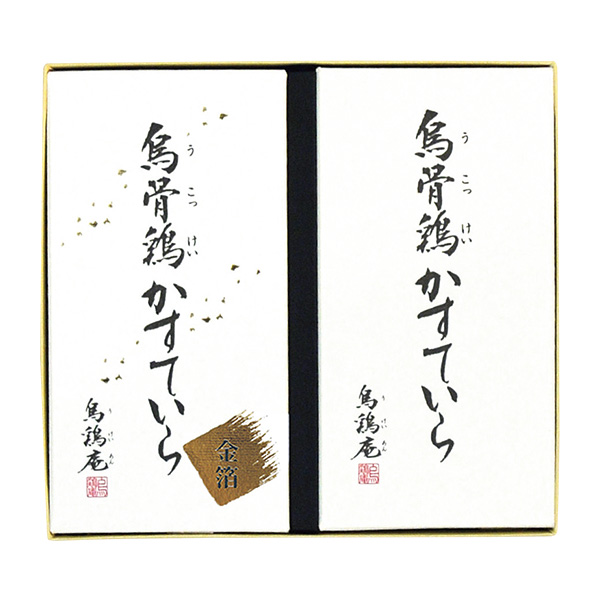 烏骨鶏かすていら
うこっけい
烏鶏庵
うけいあん
金箔
烏骨鶏かすていら
うこっけい
烏鶏庵
うけいあん